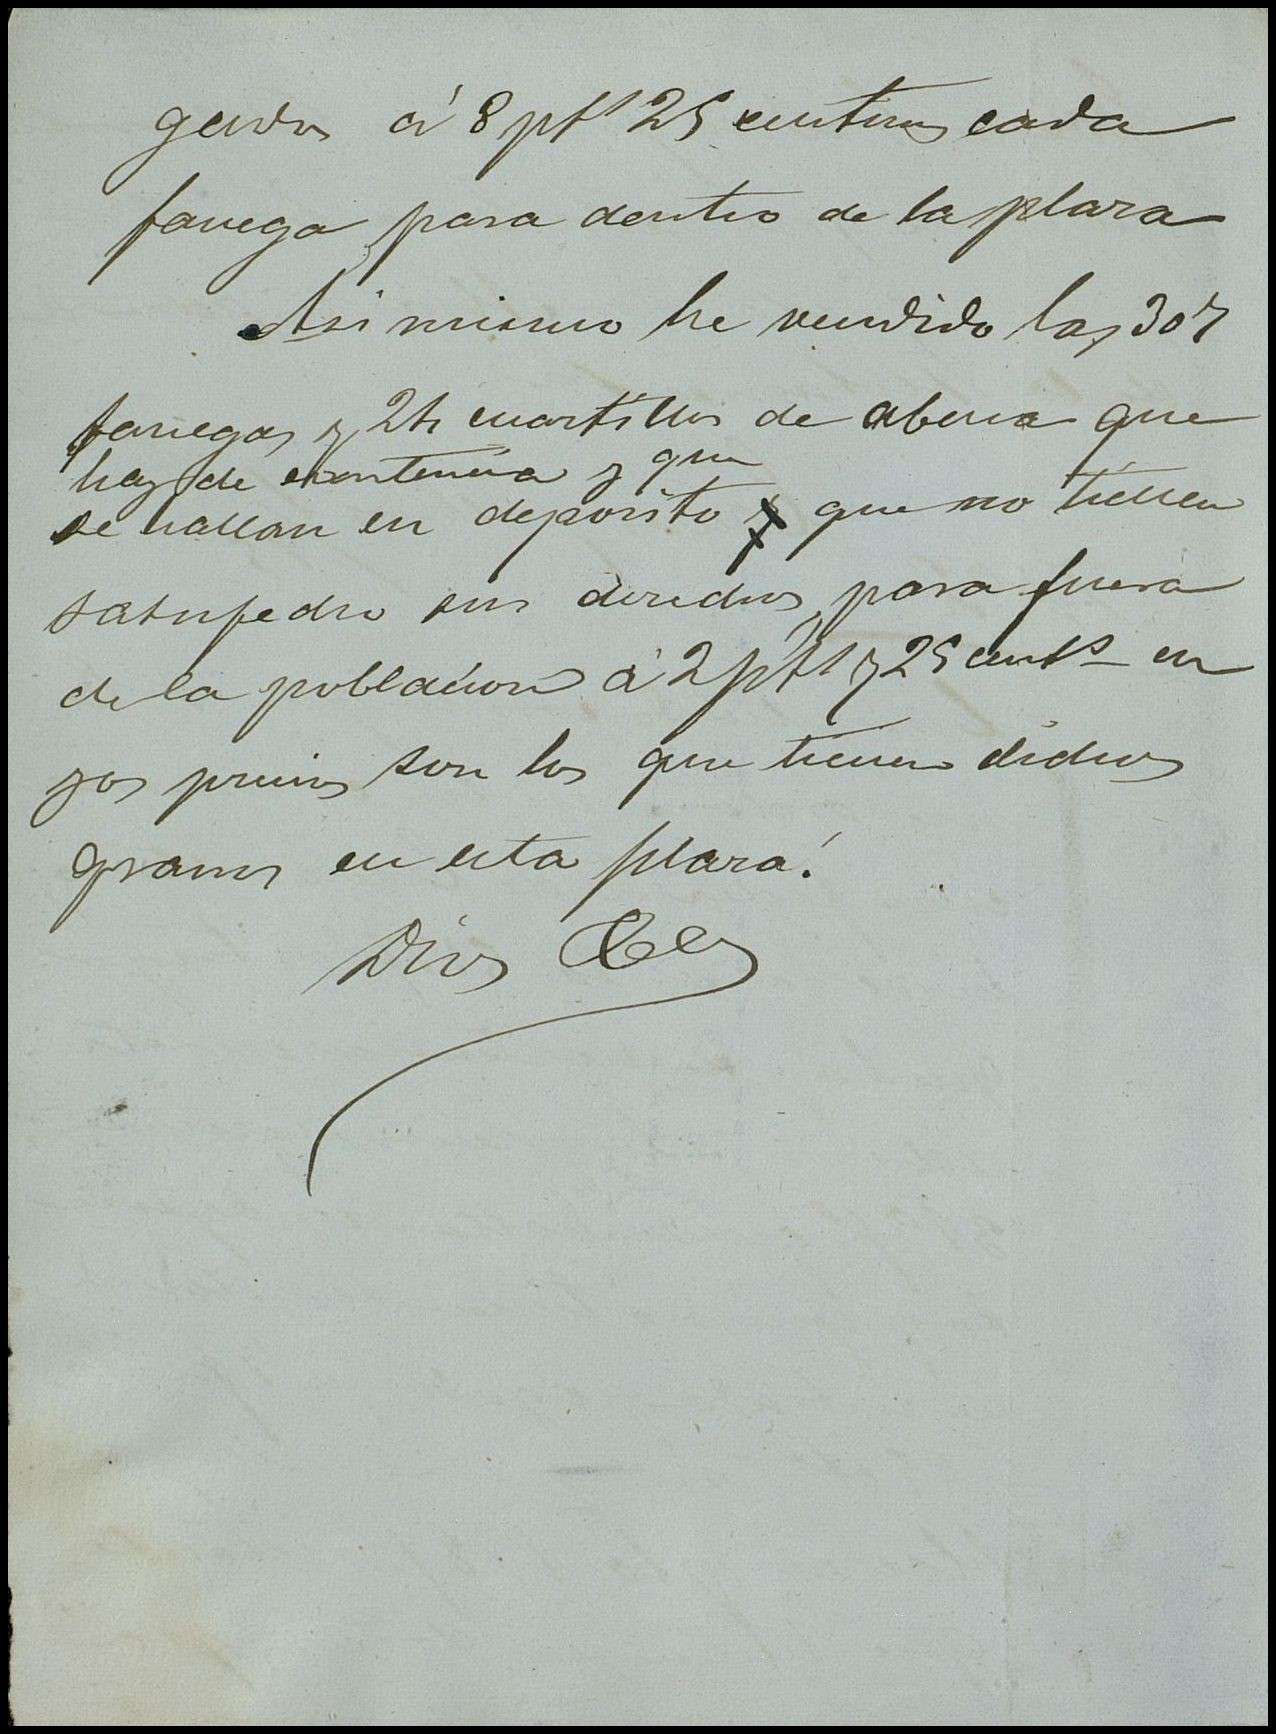 gados á 8 pts 25 centims cada
fanega para dentro de la plaza
Asi mismo he vendido las 307
fanegas y 24 cuartillos de abena que
hay de existencia y que
se hallan en deposito y que no tienen
satisfecho sus derechos para fuera
de la poblacion á 2 pts y 25 cents en
yos precios son los que tienen dichos
granos en esta plaza.
Dios